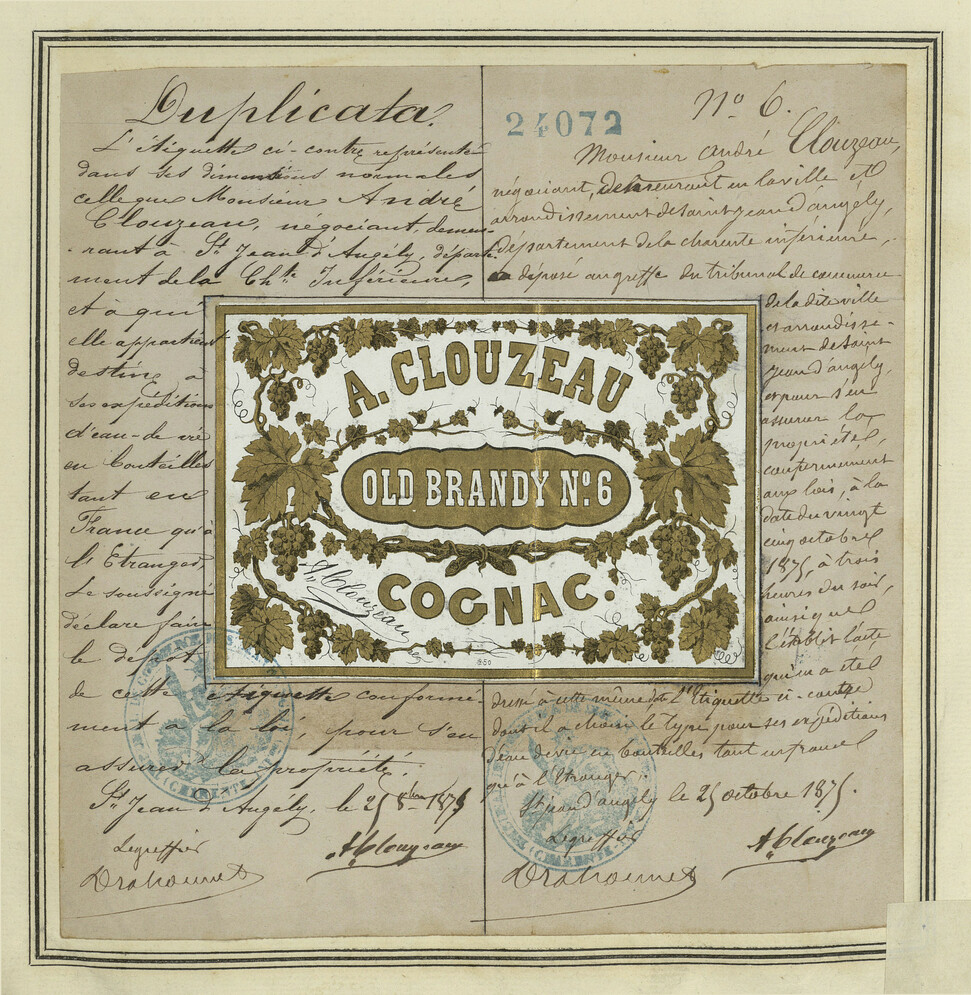 Duplicata.
L'étiquette ci-contre représente
dans ses dimensions normales
celle que Monsieur André
Clouzeau, négociant, demeu-
-rant à St Jean d'Angély, départe-
ment de la Chte Inférieure,
et à qui
elle appartient
destine à
ses expéditions
d'eau-de vie
en bouteilles
tant en
France qu'à
l'Etranger,
Le soussigné
déclare faire
le dépôt
de cette étiquette conformé-
ment à la loi, pour s'en
assurer la propriété.
St Jean d'Angély, le 25 8bre 1875
Le greffier
AClouzeau
24072
No 6.
Monsieur André Clouzeau,
négociant, demeurant en la ville et
arrondissement de Saint Jean d'angély,
département de la charente inférieure,
a déposé au greffe du tribunal de commerce
de la dite ville
et arrondisse-
ment de Saint
Jean d'angély,
et pour s'en
assurer la
propriété,
conformément
aux lois, à la
date du vingt
cinq octobre
1875, à trois
heures du soir,
ainsi que
l'établit l'acte
qui en a été
dressé à cette même date l'Etiquette ci-contre
dont il a choisi le type pour ses expéditions
d'eau de vie en bouteilles tant en france
qu'à l'Etranger.
St jean d'angély le 25 octobre 1875.
Le greffier
AClouzeau
A. CLOUZEAU
OLD BRANDY No. 6
COGNAC.
AClouzeau